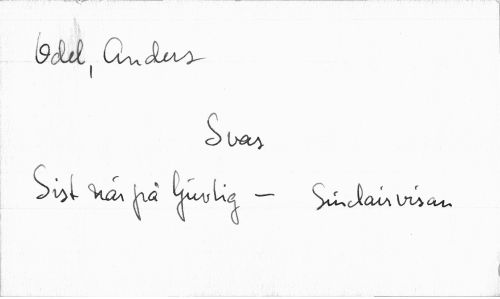 Odel, Anders
Svas
Sist när på ljuvlig — Sinclairvisan